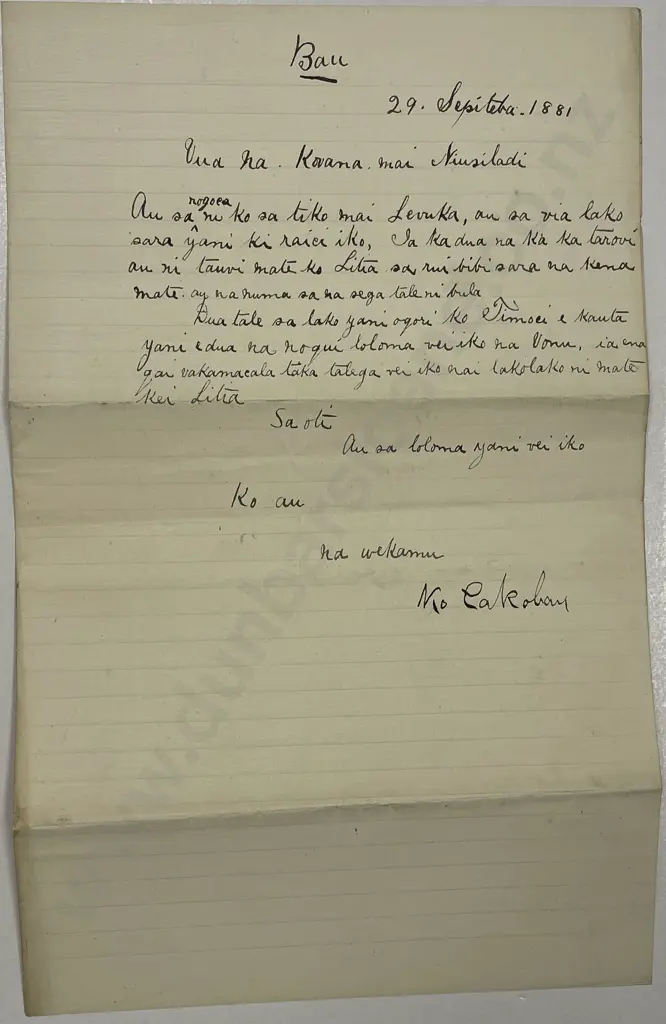 Bau
29. Sepiteba. 1881
Vua na. Kovana. mai Niusiladi
Au sa nogoca ni ko sa tiko mai Levuka, au sa via lako
sara yani ki raici iko, Ia ka dua na ka ka tarovi
au ni tauvi mate ko Litia sa rui bibi sara na kena
mate. au na numa sa na sega tale ni bula
Dua tale sa lako yani ogori ko Timoci e kauta
yani e dua na noqui loloma vei iko na Vonu, ia ena
qai vakamacala taka talega vei iko nai lakolako ni mate
kei Litia
Sa oti
Au sa loloma yani vei iko
Ko au
na wekamu
Ko Cakobau
www.dunbarsloane.co.nz